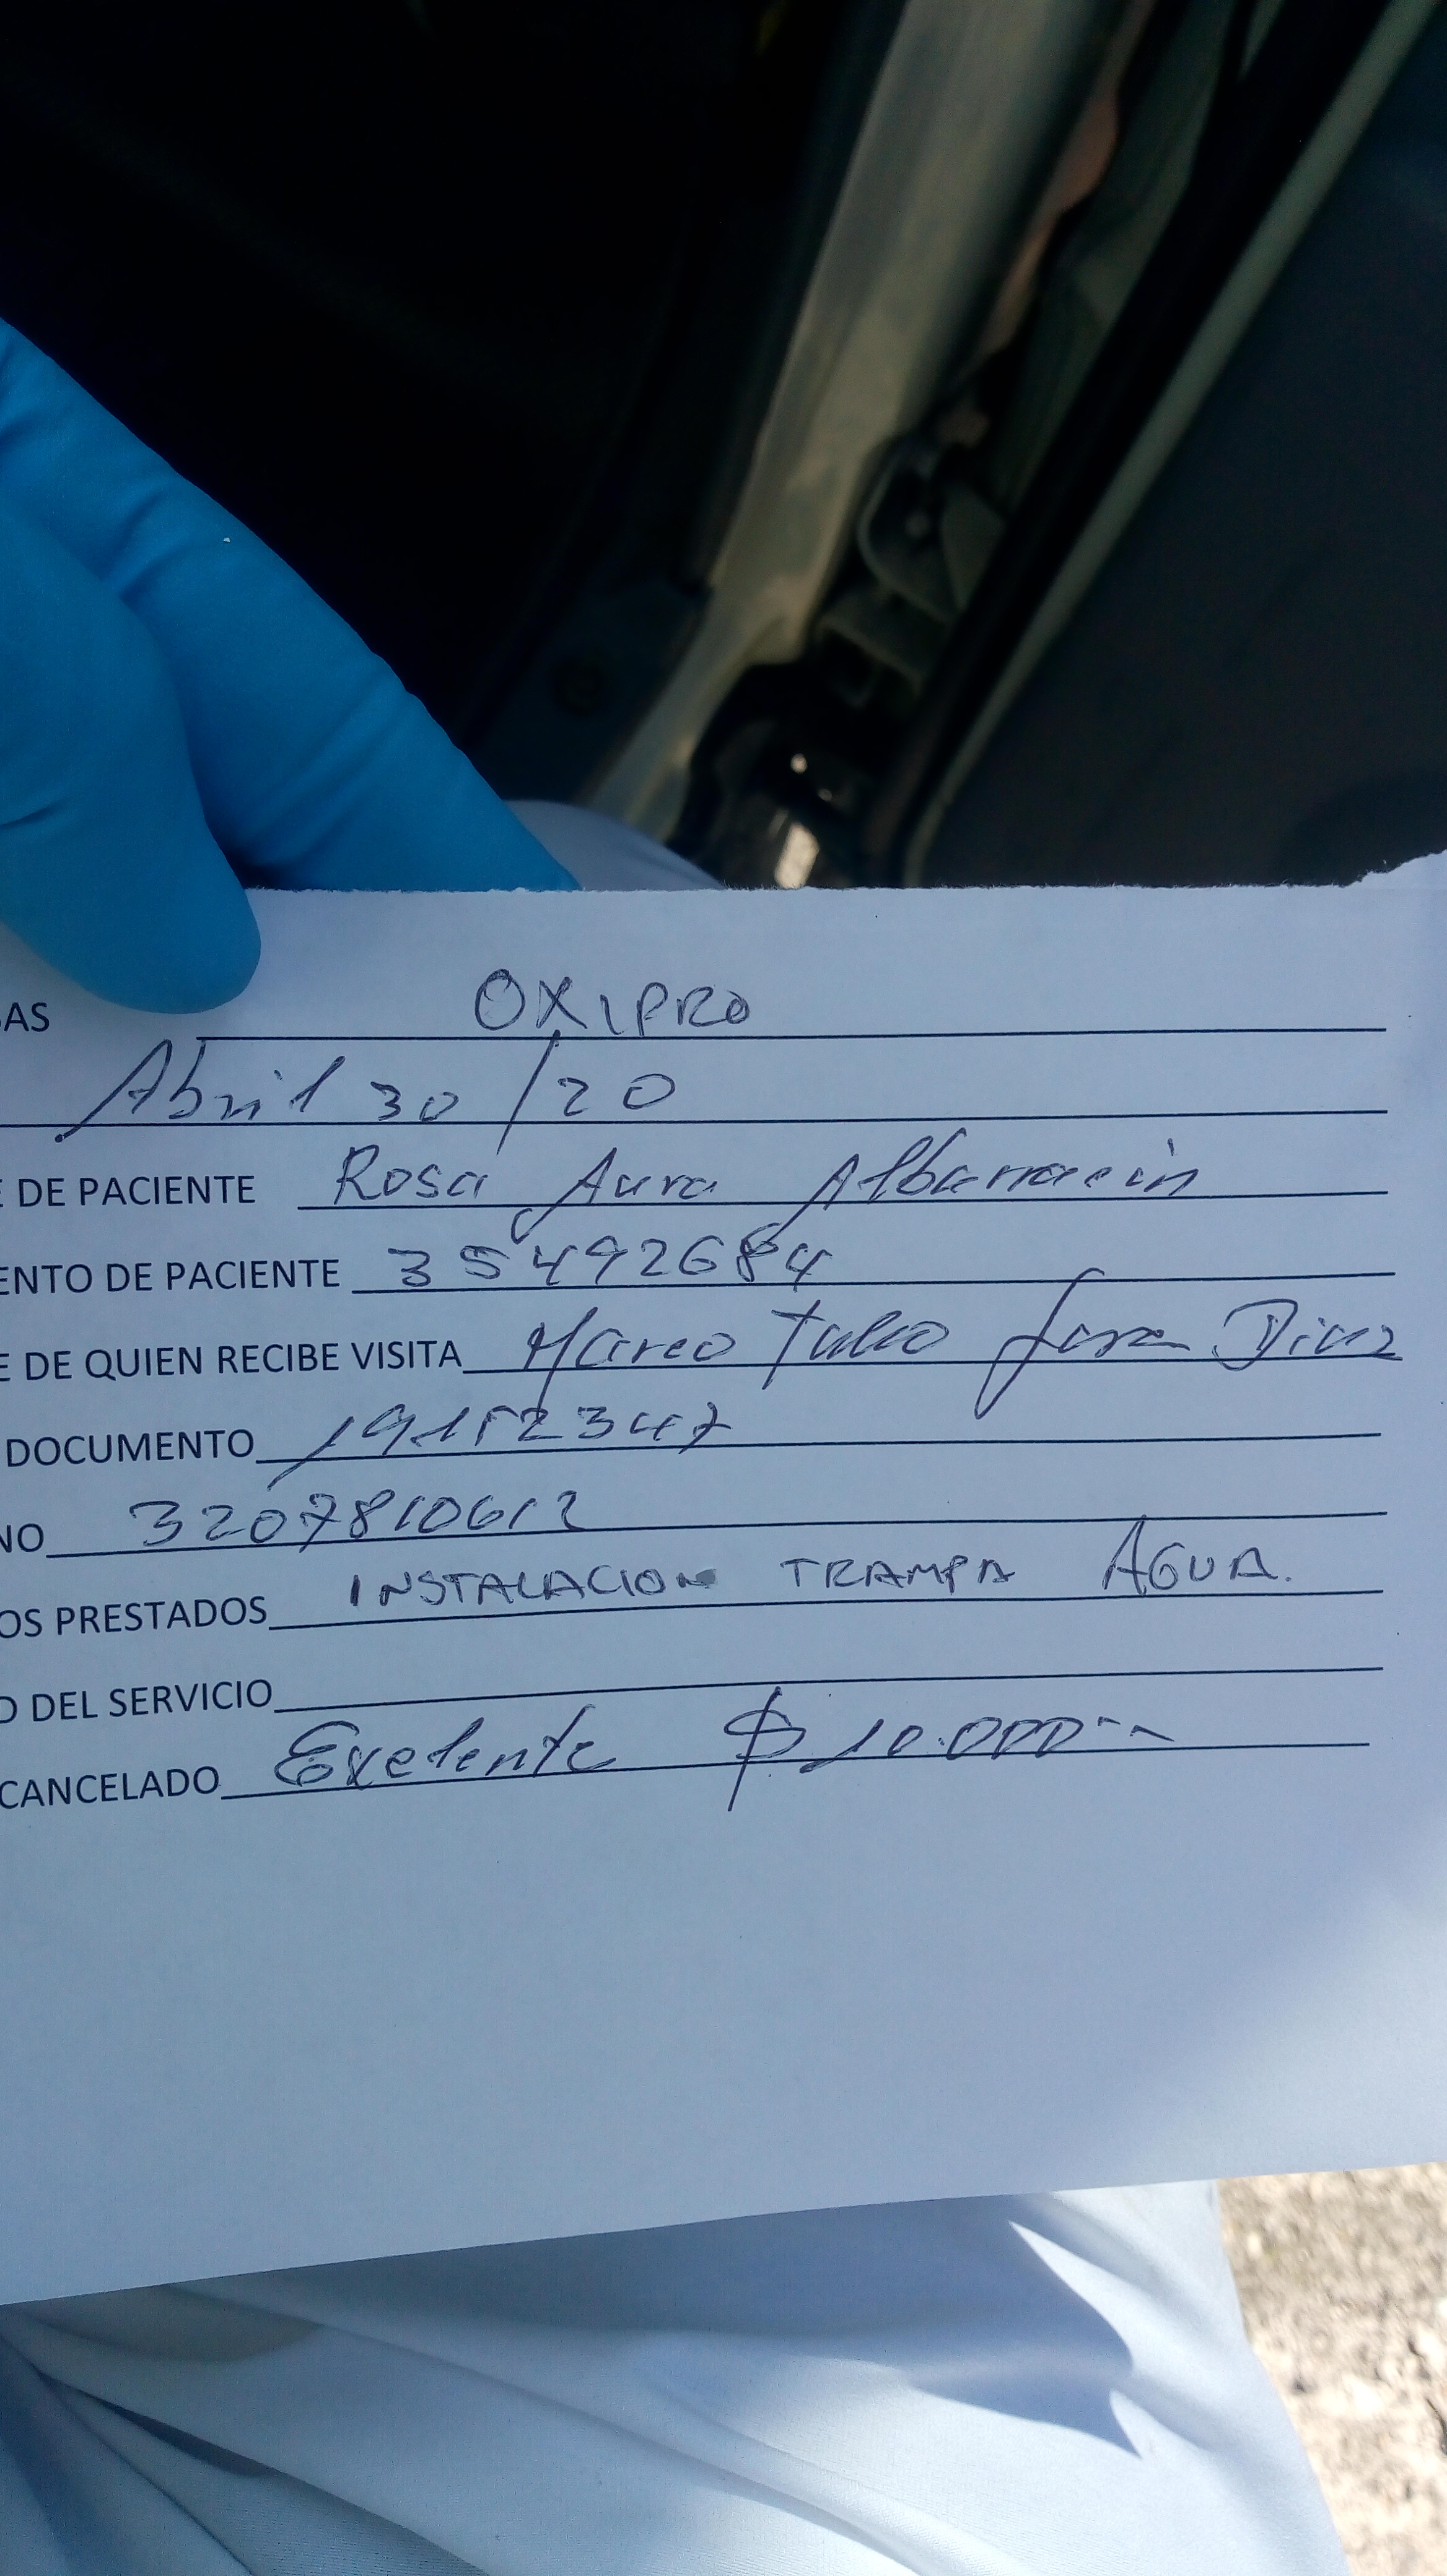 SAS OXIPRO
Abril 30/20
E DE PACIENTE Rosa Aura Albarracin
ENTO DE PACIENTE 35492684
E DE QUIEN RECIBE VISITA Marco Tulio Jara Diaz
DOCUMENTO 19152347
NO 3207810612
OS PRESTADOS INSTALACION TRAMPA AGUA.
D DEL SERVICIO
CANCELADO Exelente $10.000--